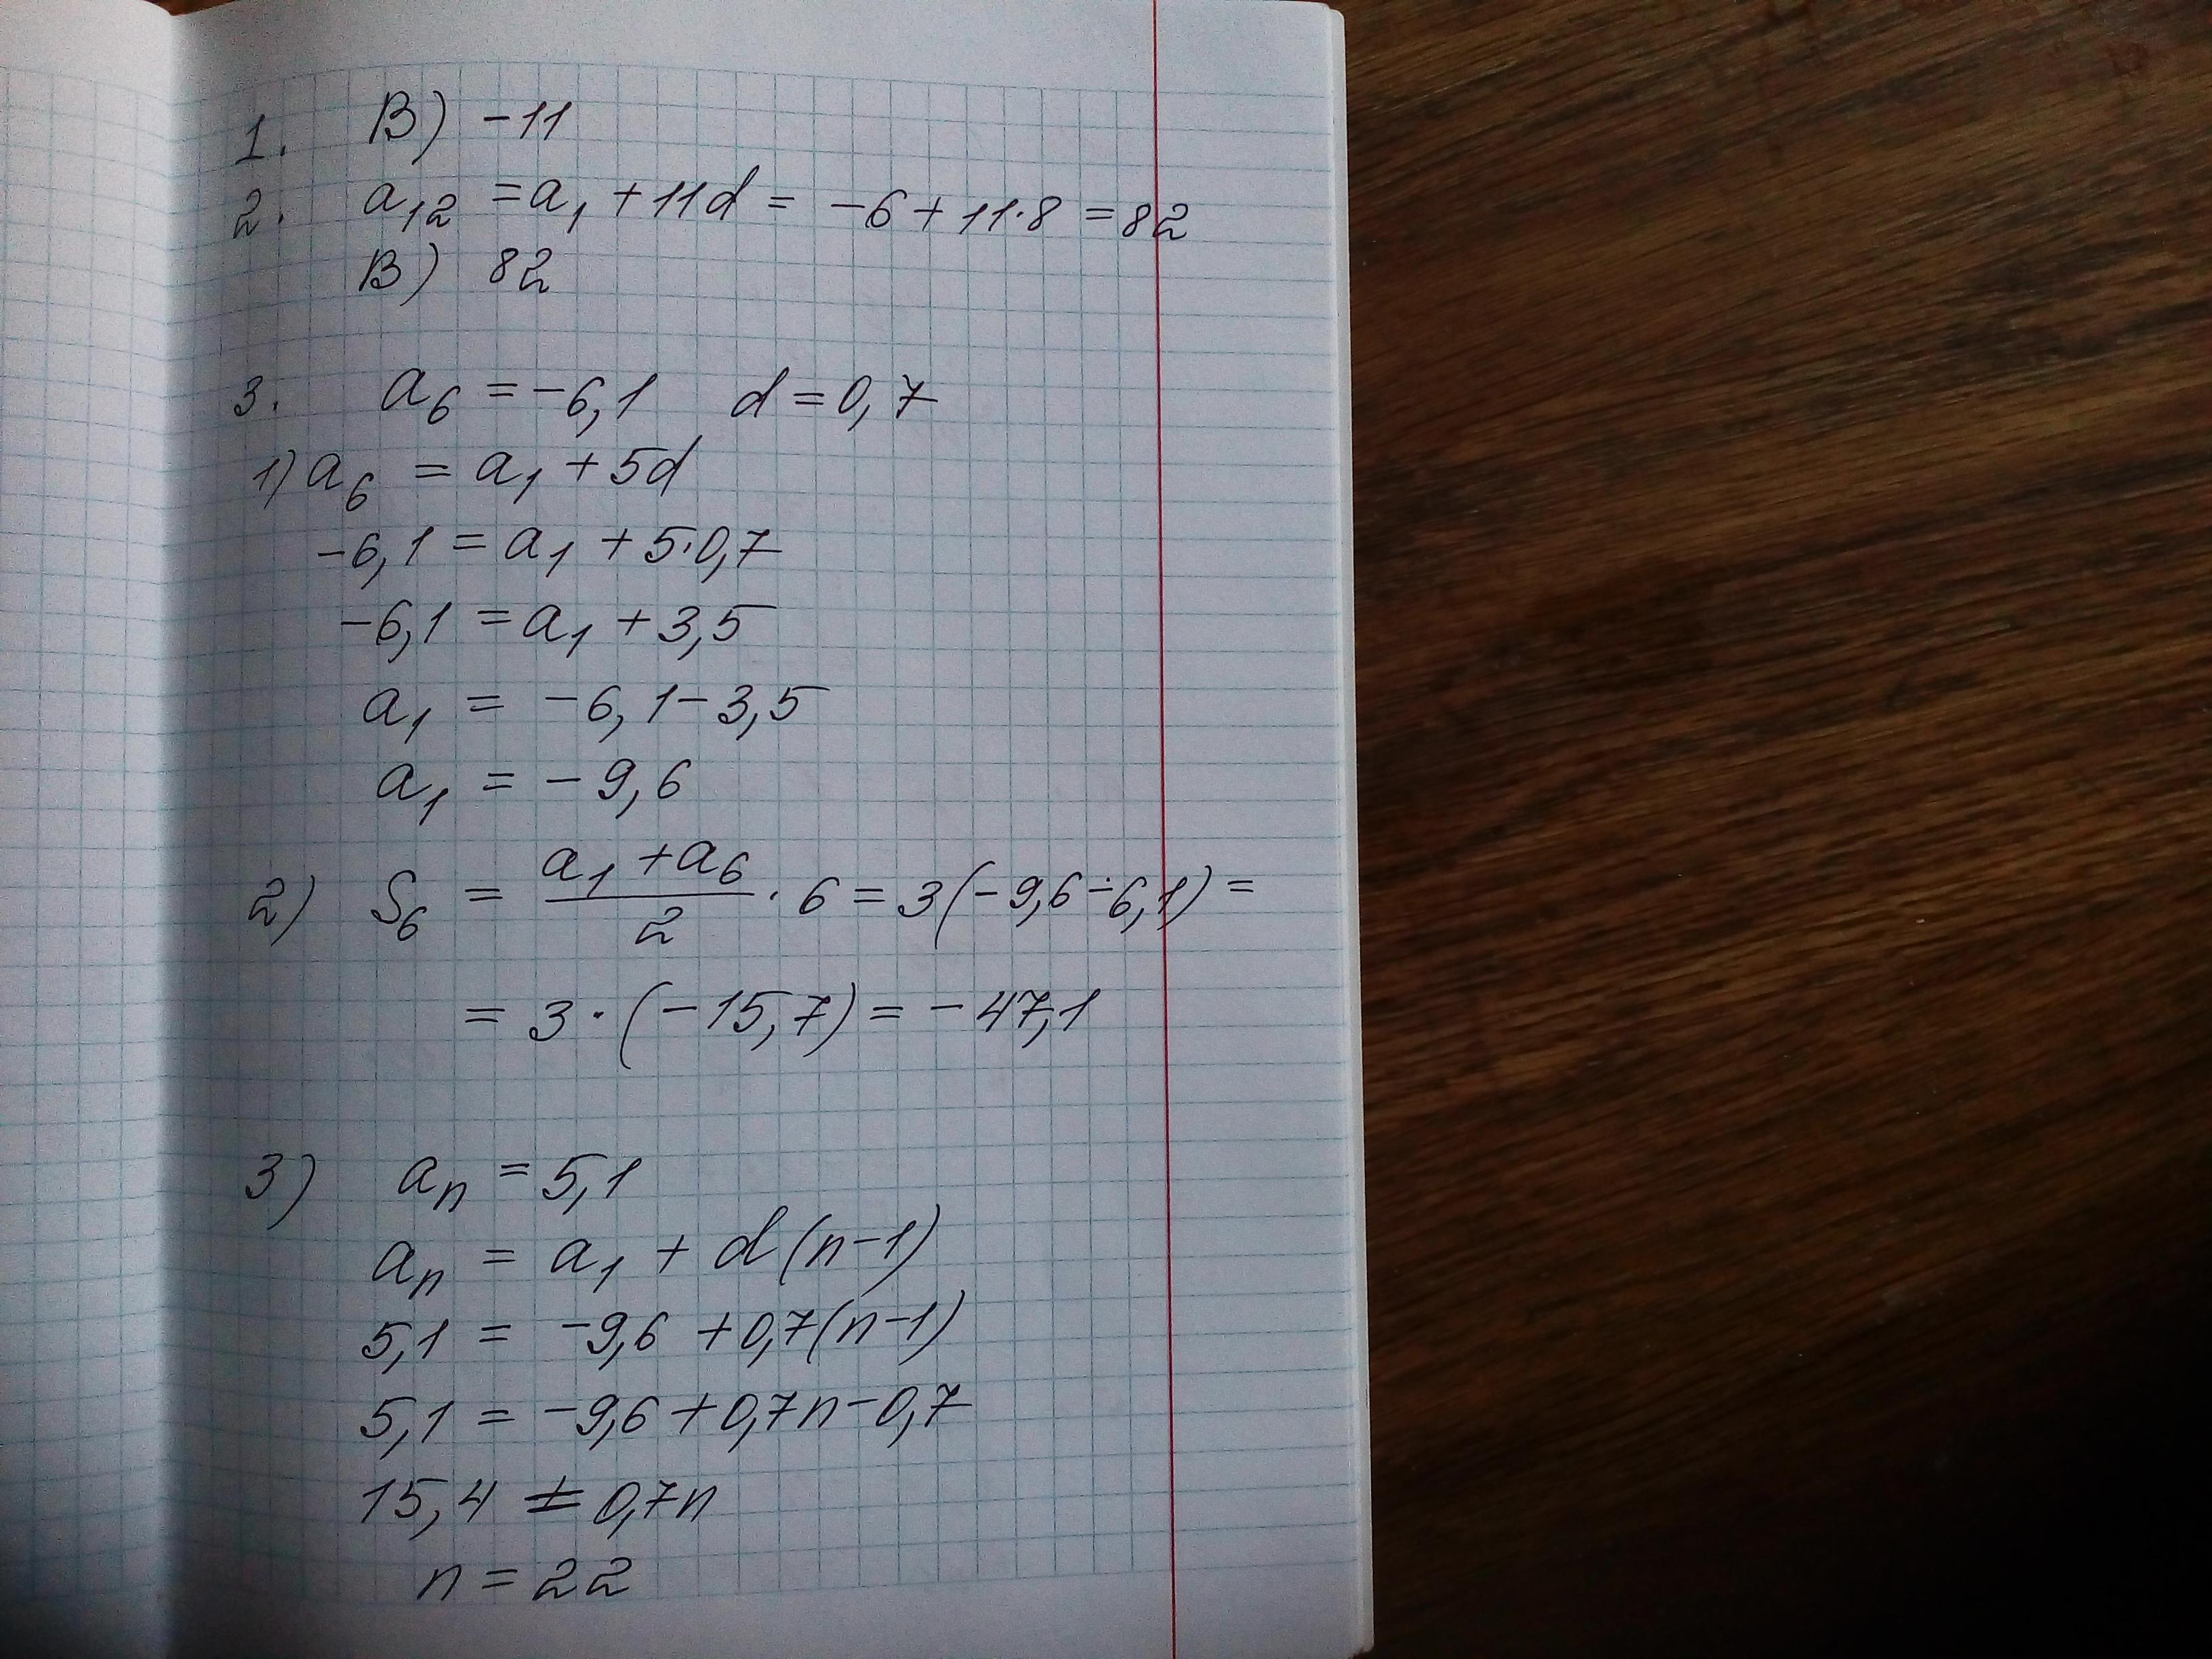 1. В) -11
2. a₁₂ = a₁ + 11d = -6 + 11·8 = 82
В) 82
3. a₆ = -6,1 d = 0,7
1) a₆ = a₁ + 5d
-6,1 = a₁ + 5·0,7
-6,1 = a₁ + 3,5
a₁ = -6,1 - 3,5
a₁ = -9,6
2) S₆ = (a₁ + a₆)/2 · 6 = 3(-9,6 - 6,1) =
= 3 · (-15,7) = -47,1
3) aₙ = 5,1
aₙ = a₁ + d(n-1)
5,1 = -9,6 + 0,7(n-1)
5,1 = -9,6 + 0,7n - 0,7
15,4 = 0,7n
n = 22